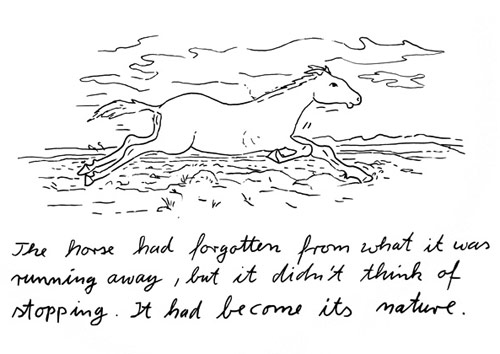 The horse had forgotten from what it was
running away, but it didn't think of
stopping. It had become its nature.